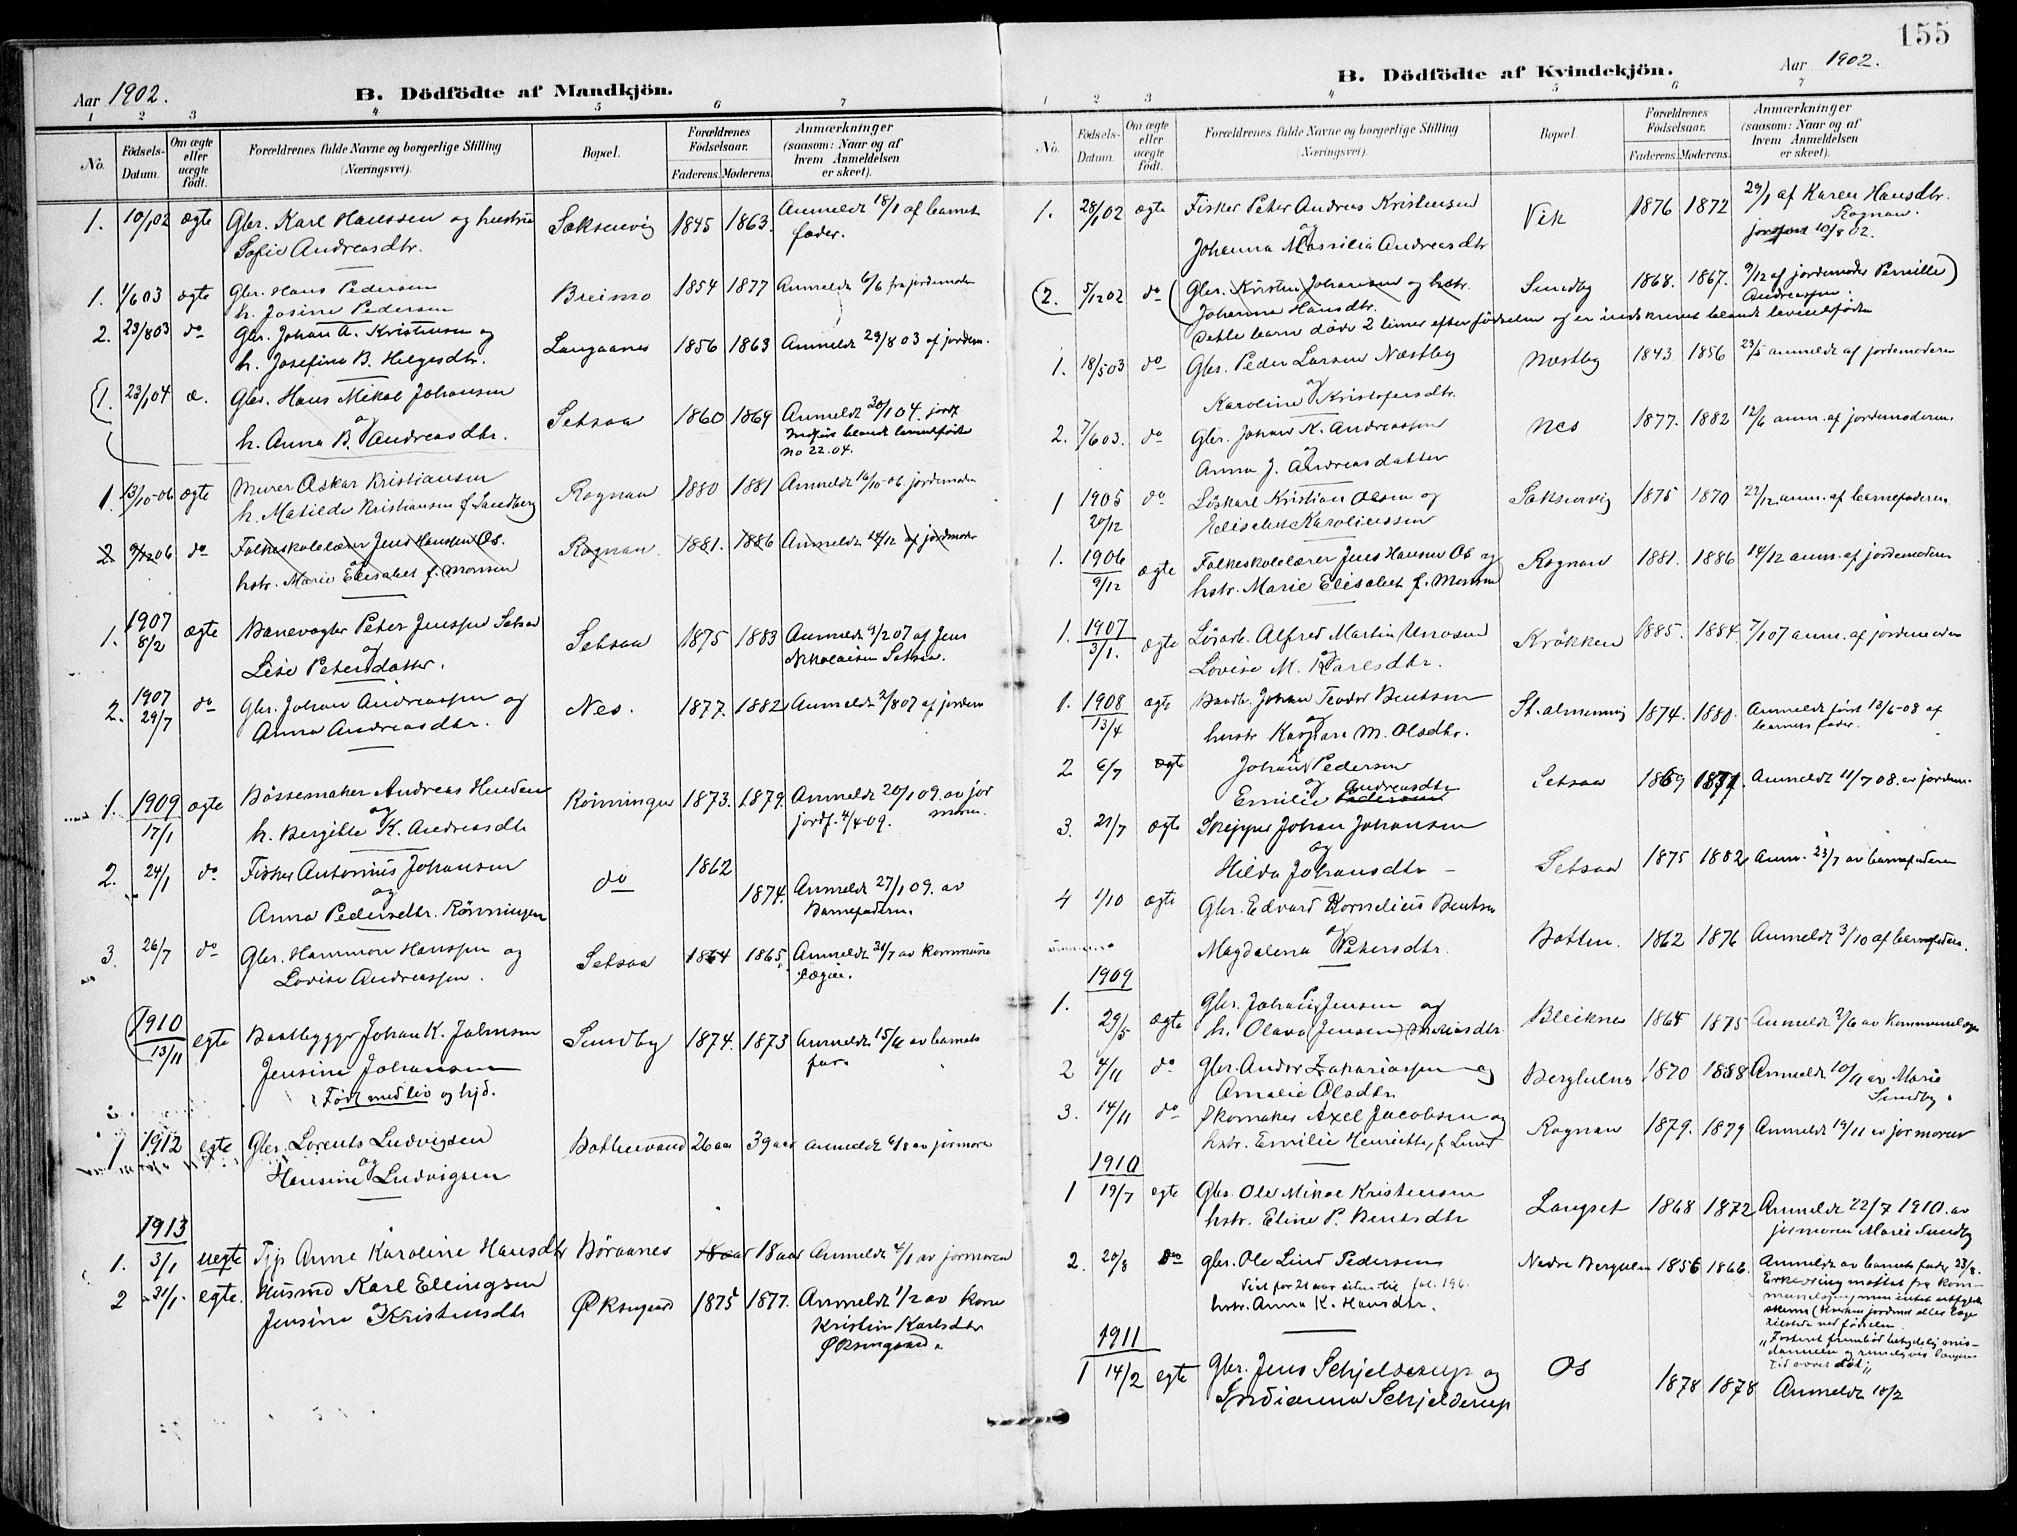 155
Aar 1902.
B. Dödfödte af Mandkjön.
1 2 3 4 5 6 7
No.
Födsels-Datum.
Om ægte eller uægte födt.
Forældrenes fulde Navne og borgerlige Stilling (Næringsvei).
Bopæl.
Forældrenes Födselsaar.
Faderens. Moderens.
Anmærkninger (saasom: Naar og af hvem Anmeldelsen er skeet).
1. 10/1 02 ægte Gbr. Karl Hanssen og hustru Saksenvig 1845 1863. Anmeldt 18/1 af barnets
Sofie Andreasdtr. fader.
1. 1/6 03 ægte Gbr. Hans Pedersen Breimo 1854 1877 Anmeldt 6/6 fra jordemoder
h. Josine Pedersen
2. 23/8 03 do Gbr. Johan A. Kristensen og Langaanes 1856 1863 Anmeldt 29/8 03 af jordem.
h. Josefine B. Helgesdtr.
1. 23/1 04 æ. Gbr. Hans Mikal Johansen Setsaa 1860 1869 Anmeldt 30/1 04. jordf
og
h. Anna B. Andreasdtr. Indført blandt levendefødte
no 22.04.
1. 13/10-06 ægte Murer Oskar Kristiansen Rognan 1880 1881 Anmeldt 16/10-06 jordemoder
h. Matilde Kristiansen f. Sandberg
2. 9/12 06 do Folkeskolelærer Jens Hansen Os. Rognan. 1881. 1886 Anmeldt 14/12 af jordmoder
og
hstr. Marie Elisabet f. Monsen
1. 1907 8/2 ægte Banevogter Peter Jenssen Setsaa Setsaa 1875 1883 Anmeldt 9/2 07 af Jens
og
Lise Petersdatter. Nikolaisen Setsaa.
2. 1907 29/7 do Gbr. Johan Andreassen og Nes. 1877. 1882 Anmeldt 2/8 07 af jordem
Anna Andreasdtr.
1. 1909 17/1 ægte Bøssemaker Andreas Henden Rönningen 1873. 1879. Anmeldt 20/1 09. av jor
og
h. Bergitte K. Andreasdtr. jordf. 4/4-09. moren.
2. 24/1 do Fisker Antonius Johansen do 1862 1874. Anmeldt 27/1 09. av
og
Anna Pedersdtr. Rönningen Barnefaderen.
3. 26/7 do Gbr. Hammon Hanssen og Setsaa 1864 1865. Anmeldt 30/7 av kommune
Lovise Andreassen. læge.
1910 13/11 egte Baatbygger Johan K. Johnsen Sundby 1874. 1873 Anmeldt 15/11 av barnets
Jensine Johansen far.
Født med liv og hjd.
1 1912 egte Gbr. Lorents Ludvigsen Bottenvand 26 aar 39 aar anmeldt 6/8 av jormoren
og
Hansine Ludvigsen
1913
1. 3/1 uegte Tjp Anne Karoline Hansdtr Böraanes 18 aar 18 aar Anmeldt 4/1 av jormoren
2 31/1 egte. Husmd Karl Ellingsen Øksengaard 1875 1877. Anmeldt 1/2 av kone
og
Jensine Kristensdtr Kristin Karlsdtr
Øksengaard.
Aar 1902.
B. Dödfödte af Kvindekjön.
1 2 3 4 5 6 7
No.
Födsels-Datum.
Om ægte eller uægte födt.
Forældrenes fulde Navne og borgerlige Stilling (Næringsvei).
Bopæl.
Forældrenes Födselsaar.
Faderens. Moderens.
Anmærkninger (saasom: Naar og af hvem Anmeldelsen er skeet).
1. 28/1 02 ægte Fisker Peter Andreas Kristensen Vik 1876 1872 29/1 af Karen Hansdtr.
og Rognan.
Johanna Massilia Andreasdtr jordfæst 10/8 02.
(2. 5/12 02 do Gbr. Kristen Johansen og hstr. Sundby 1868. 1867. 9/12 af jordemoder Pernille)
Johanna Hansdtr. Andreassen.
Dette barn døde 2 timer efter fødselen og er indskrevet blandt levendefødte
1. 18/5 03 do Gbr. Peder Larsen Næstby Næstby 1843 1856 23/5 anmeldt af jordemoderen
og
Karoline Kristofersdtr.
2. 7/6 03. do Gbr. Johan K. Andreassen Nes 1877. 1882 12/6 anm. af jordemoderen.
og
Anna J. Andreasdatter
1 1905 20/12 do Löskarl Kristian Olsen og Saksenvig 1875 1870 27/12 anm. af barnefaderen
Elisabet Karolinssen
1. 1906 9/12 ægte Folkeskolelærer Jens Hansen Os og Rognan 1881. 1886 14/12 anm. af jordemoderen
hstr. Marie Elisabet f. Monsen
1. 1907 3/1. ægte Lösarb. Alfred Martin Urosen Krökken 1885. 1884 7/1 07 anm. af jordemoder
og
Lovise M. Karlsdtr.
1. 1908 13/4 ægte Baadb. Johan Teodor Bentsen St.almenning 1874. 1880. Anmeldt först 13/6-08 af
og
hustr Kaspara M. Olsdtr. barnets fader.
2 6/7 ægte Johan Pedersen Setsaa 1869 1871 Anmeldt 11/7 08. av jordem.
og Andreasdtr
Emilie Pedersen
3. 21/7 ægte Skipper Johan Johansen Setsaa 1875 1882 Anm. 23/7 av barnefaderen
og
Hilda Johansdtr
4 1/10 ægte Gbr. Edvard Kornelius Bentsen Botten. 1862 1876 Anmeldt 3/10 af barnefadern.
og
Magdalena Petersdtr.
1909
1. 29/5 ægte Gbr. Johan P. Jensen og Bleiknes 1864 1875 Anmeldt 2/6 av Kommunelæge
h. Olava (Jensen)
2 4/11 do Gbr. Andor Zakariassen og Berghulnes 1870 1888 Anmeldt 10/11 av Marie
Amalie Olsdtr. Sundby.
3. 14/11 do Skomaker Axel Jacobsen og Rognan 1879. 1879 Anmeldt 19/11 av jormoren
hstr. Emilie Henriette f. Lund
1910
1 19/7 egte Gbr. Ole Mikal Kristensen Langset 1868 1872 Anmeldt 22/7 1910. av
hstr. Eline P. Bentsdtr jormoren Marie Sundby
2. 20/8 do Gbr. Ole Lind Pedersen Nedre Bergulnes 1856 1866. Anmeldt av barnets fader 23/8.
Viet for 21 aar siden fol. 196.
hstr. Anna K. Hansdtr. Erklæring mottat fra kom-
1911
1 14/2 egte Gbr. Jens Schjelderup og Os 1878 1878 Anmeldt 18/2
Indianna Schjelderup